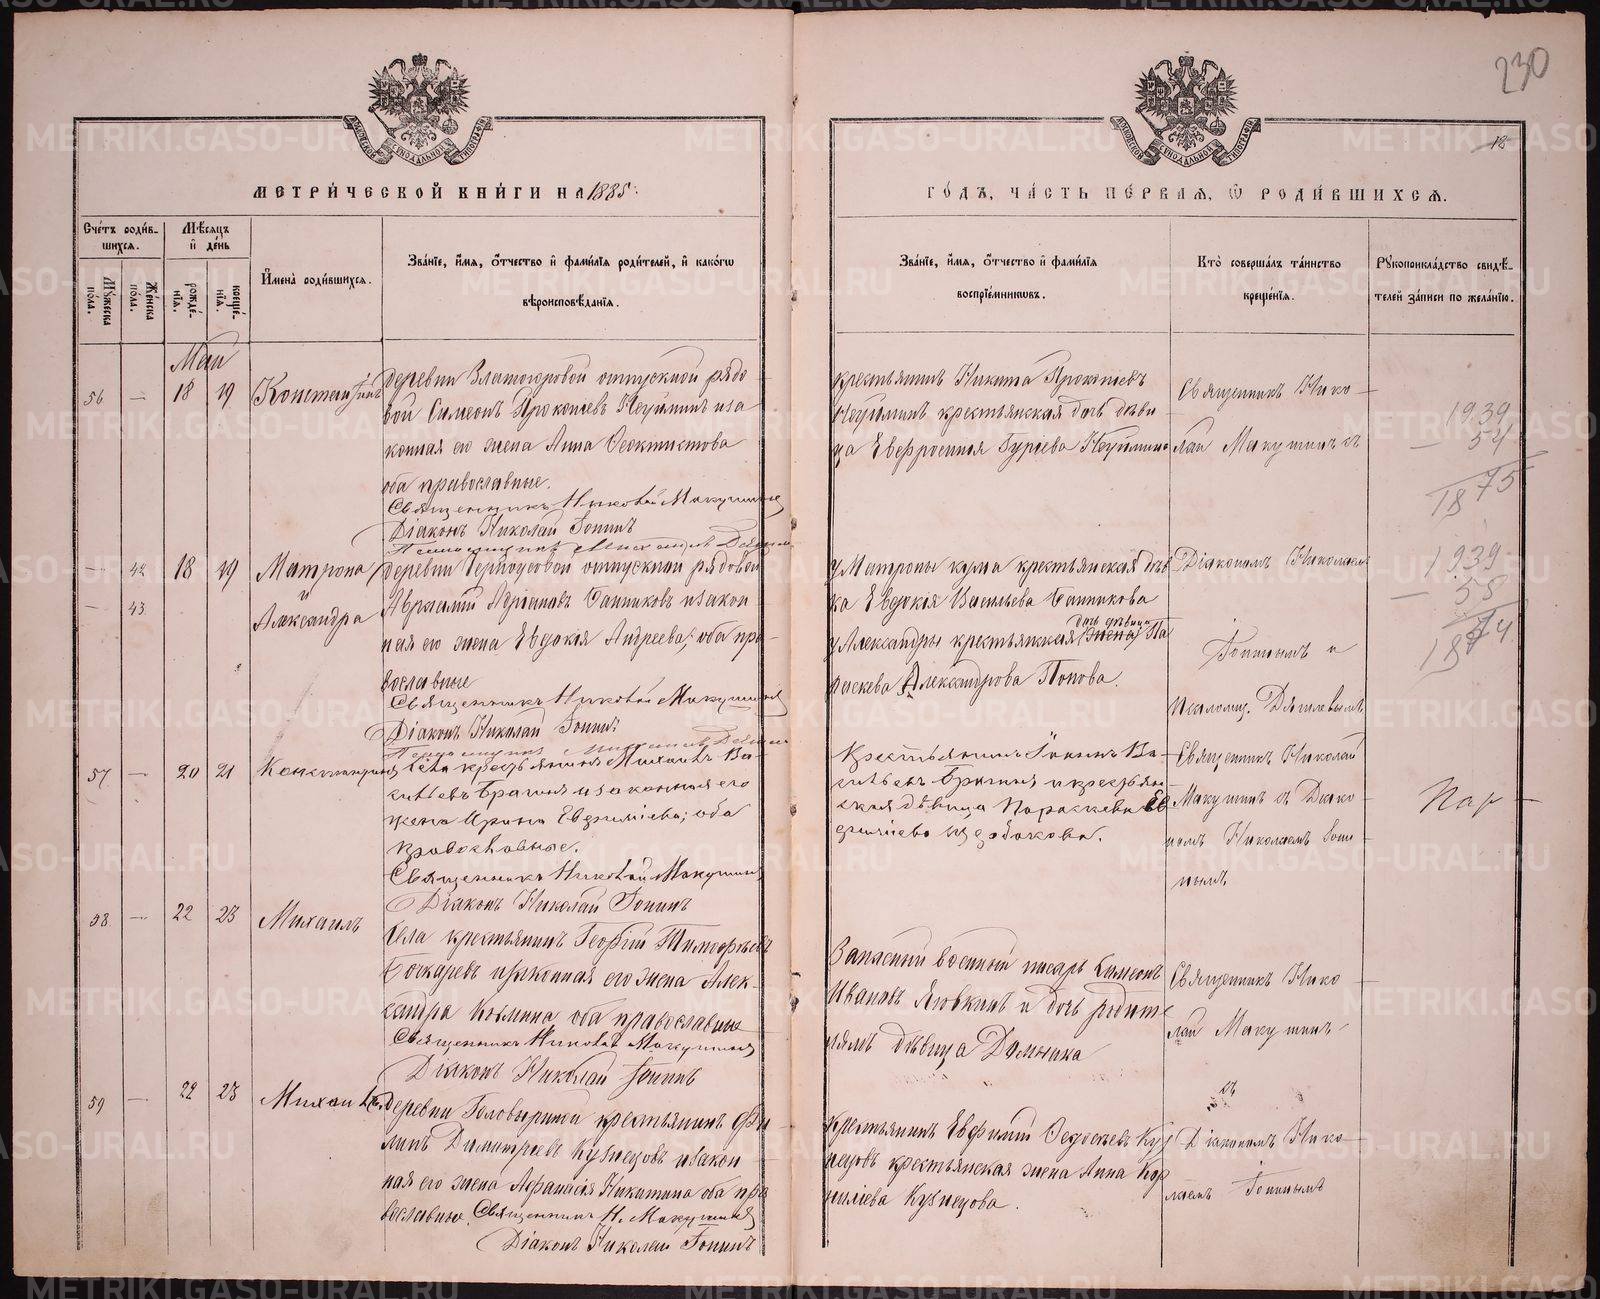 230
18
МЕТРИ́ЧЕСКОЙ КНИ́ГИ НА 1885:
ГО́ДЪ, ЧА́СТЬ ПЕ́РВАЯ, Ѽ РОДИ́ВШИХСЯ.
Сче́тъ роди́в-
шихся.
Мѣ́сяцъ
и҆ де́нь
Му́жеска
по́ла.
Же́нска
по́ла.
рожде́-
нїя.
креще́-
нїя.
И҆мена̀ роди́вшихся.
Зва́нїе, и҆́мя, ѻ҆́тчество и҆ фами́лїя роди́телей, и҆ како́гѡ
вѣроисповѣ́данїя.
Зва́нїе, и҆́мя, ѻ҆́тчество и҆ фами́лїя
воспрїе́мникѡвъ.
Кто̀ соверша́лъ та́инство
креще́нїя.
Рꙋкоприкла́дство свидѣ́-
телей за́писи по жела́нїю.
Май
56 — 18 19 Константинъ
деревни Златогоровой отпускной рядо
вой Симеонъ Прокопьевъ Неуйминъ и за
конная его жена Анна Феоктистова
оба православные.
Священникъ Николай Макушинъ
Діаконъ Николай Топинъ
крестьянинъ Никита Прокопьевъ
Неуйминъ крестьянская дочь дѣви
ца Евфросинія Гурьева Неуймина
Священникъ Нико
лай Макушинъ съ
1939
— 54
1875
— 42 18 19 Матрона
и
— 43 Александра
деревни отпускной рядовой
Авраамій Санниковъ и закон
ная его жена Евдокія Андреева; оба пра
вославные
Священникъ Николай Макушинъ
Діаконъ Николай Топинъ
у Матроны кума крестьянская дѣв
ка Евдокія Васильева Санникова
дочь дѣвица
у Александры крестьянская (жена) Па
раскева Александрова Попова.
Діакономъ Николаемъ
Топинымъ и
Псаломщ.
1939
— 58
1874
57 — 20 21 Константинъ
Села крестьянинъ Михаилъ Ва-
сильевъ и законная его
жена Ирина Евфиміева; оба
православные.
Священникъ Николай Макушинъ
Діаконъ Николай Топинъ
Крестьянинъ Ва-
сильевъ и крестьян
ская дѣвица Параскева Ев
фиміева
Священникъ Николай
Макушинъ съ Діако-
номъ Николаемъ Топи-
нымъ
58 — 22 23 Михаилъ
Села крестьянинъ Георгій Тимофѣевъ
Бочкаревъ и законная его жена Алек-
сандра Козмина оба православные
Священникъ Николай Макушинъ
Діаконъ Николай Топинъ
Запасный военный писарь Симеонъ
Ивановъ и дочь родите
лямъ дѣвица Домника
Священникъ Нико
лай Макушинъ
съ
59 — 22 23 Михаилъ
деревни Головыриной крестьянинъ Фи
липъ Димитріевъ Кузнецовъ и закон
ная его жена Афанасія Никитина оба пра
вославные. Священникъ Н. Макушинъ
Діаконъ Николай Топинъ
крестьянинъ Евфимій Федосѣевъ Куз
нецовъ крестьянская жена Анна Кор
ниліева Кузнецова.
Діакономъ Нико-
лаемъ Топинымъ